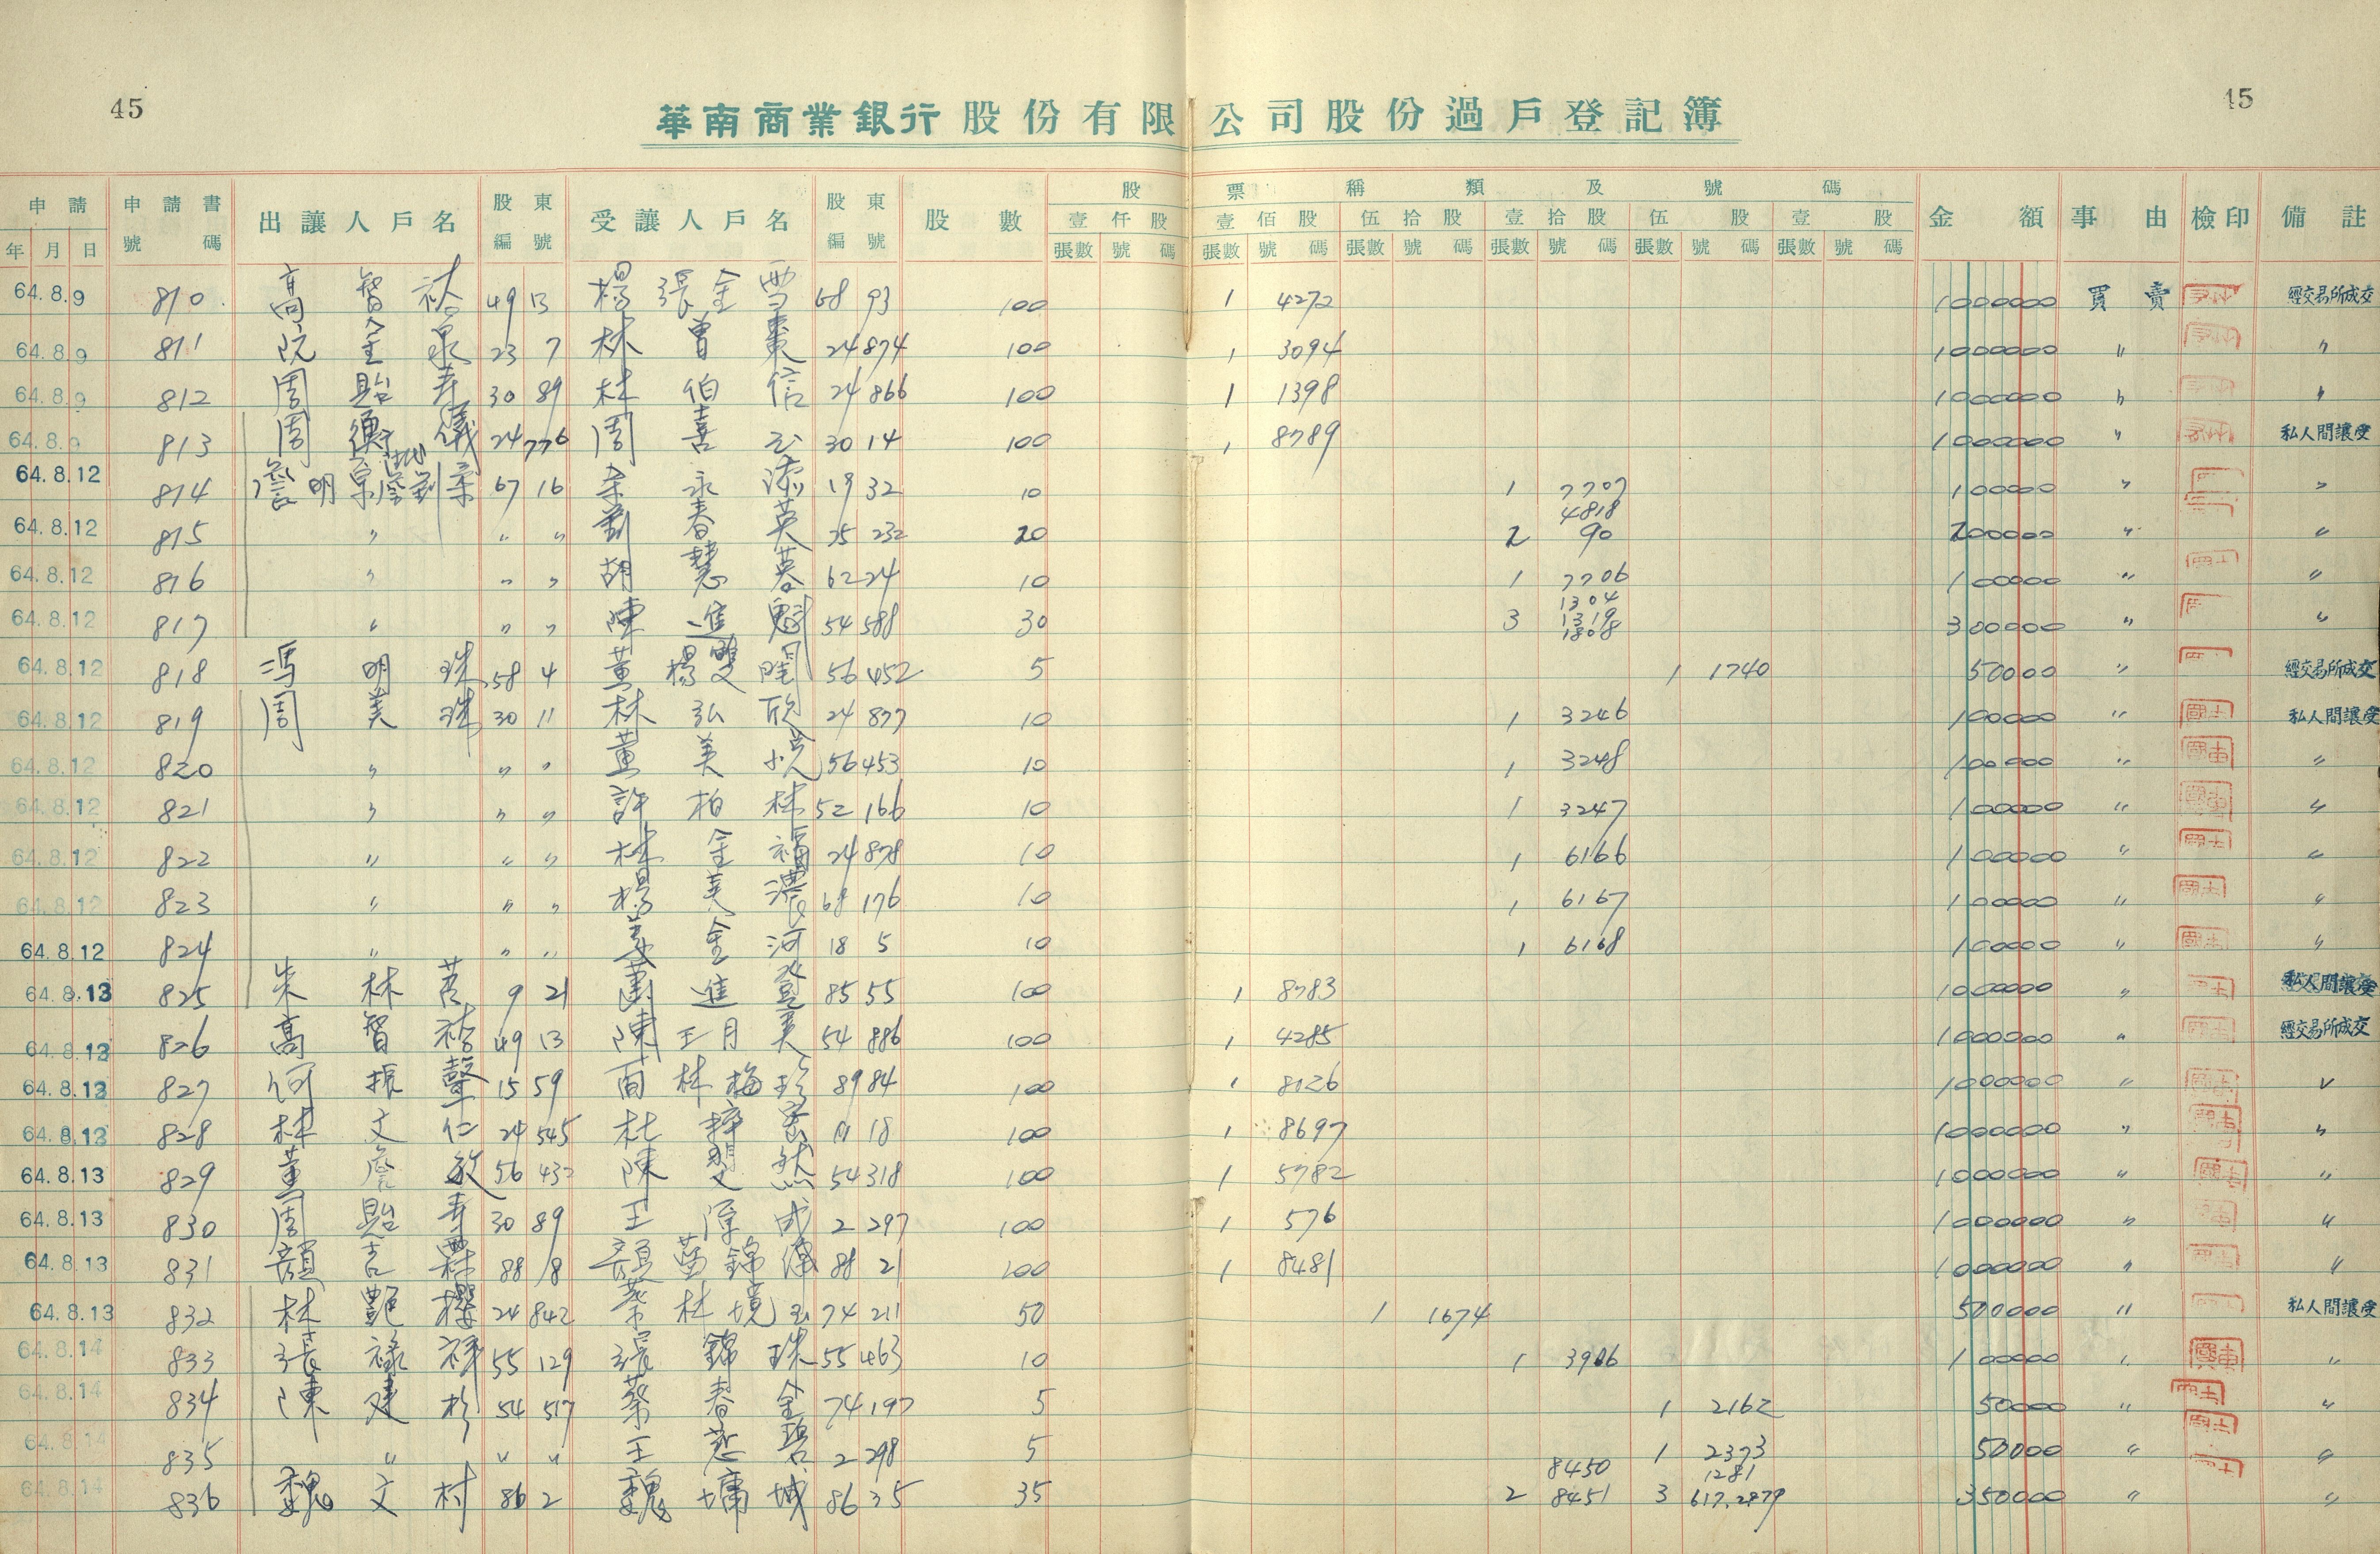 45
45
華南商業銀行股份有限公司股份過戶登記簿
申請 申請書 出讓人戶名 股東 受讓人戶名 股東 股數 股票種類及號碼 金額 事由 檢印 備註
年 月 日 號碼 編號 編號 壹仟股 壹佰股 伍拾股 壹拾股 伍股 壹股
張數 號碼 張數 號碼 張數 號碼 張數 號碼 張數 號碼 張數 號碼
64.8.9 810 高智 49 13 楊張金雪 68 93 100 1 4272 1000000 買賣 經交易所成交
64.8.9 811 阮金泉 23 7 林曾棗 24 874 100 1 3094 1000000 〃 〃
64.8.9 812 周貽春 30 89 林伯信 24 866 100 1 1398 1000000 〃 〃
64.8.9 813 周儀 24 776 周喜 30 14 100 1 8789 1000000 〃 私人間讓受
64.8.12 814 詹明 67 16 永添 19 32 10 1 7707 100000 〃 〃
64.8.12 815 〃 〃 〃 劉春英 25 232 20 2 4818 90 200000 〃 〃
64.8.12 816 〃 〃 〃 胡慧 62 24 10 1 7706 100000 〃 〃
64.8.12 817 〃 〃 〃 陳進魁 54 588 30 3 1304 1319 1808 300000 〃 〃
64.8.12 818 馮明珠 58 4 黃楊雙 56 452 5 1 1740 50000 〃 經交易所成交
64.8.12 819 周美珠 30 11 林弘欣 24 877 10 1 3246 100000 〃 私人間讓受
64.8.12 820 〃 〃 〃 黃美 56 453 10 1 3248 100000 〃 〃
64.8.12 821 〃 〃 〃 許柏林 52 166 10 1 3247 100000 〃 〃
64.8.12 822 〃 〃 〃 林金福 24 878 10 1 6166 100000 〃 〃
64.8.12 823 〃 〃 〃 楊美濃 68 176 10 1 6167 100000 〃 〃
64.8.12 824 〃 〃 〃 姜金河 18 5 10 1 6168 100000 〃 〃
64.8.13 825 朱林 9 21 進登 85 55 100 1 8783 1000000 〃 私人間讓受
64.8.13 826 高智 49 13 陳王月美 54 886 100 1 4285 1000000 〃 經交易所成交
64.8.13 827 何振聲 15 59 林梅珍 89 84 100 1 8126 1000000 〃 〃
64.8.13 828 林文仁 24 545 杜 18 100 1 8697 1000000 〃 〃
64.8.13 829 黃詹敏 56 432 陳然 54 318 100 1 5782 1000000 〃 〃
64.8.13 830 周貽春 30 89 王厚成 2 297 100 1 576 1000000 〃 〃
64.8.13 831 顏吉霖 88 18 顏錦 88 21 100 1 8481 1000000 〃 〃
64.8.13 832 林艷櫻 24 842 蔡林境玉 74 211 50 1 1674 500000 〃 私人間讓受
64.8.14 833 張祿祥 55 129 張錦珠 55 463 10 1 3906 100000 〃 〃
64.8.14 834 陳建杉 54 517 蔡春金 74 197 5 1 2162 50000 〃 〃
64.8.14 835 〃 〃 〃 王碧 2 298 5 1 2373 50000 〃 〃
64.8.14 836 魏文村 86 2 魏墉城 86 35 35 2 8450 8451 3 1281 617.2879 350000 〃 〃